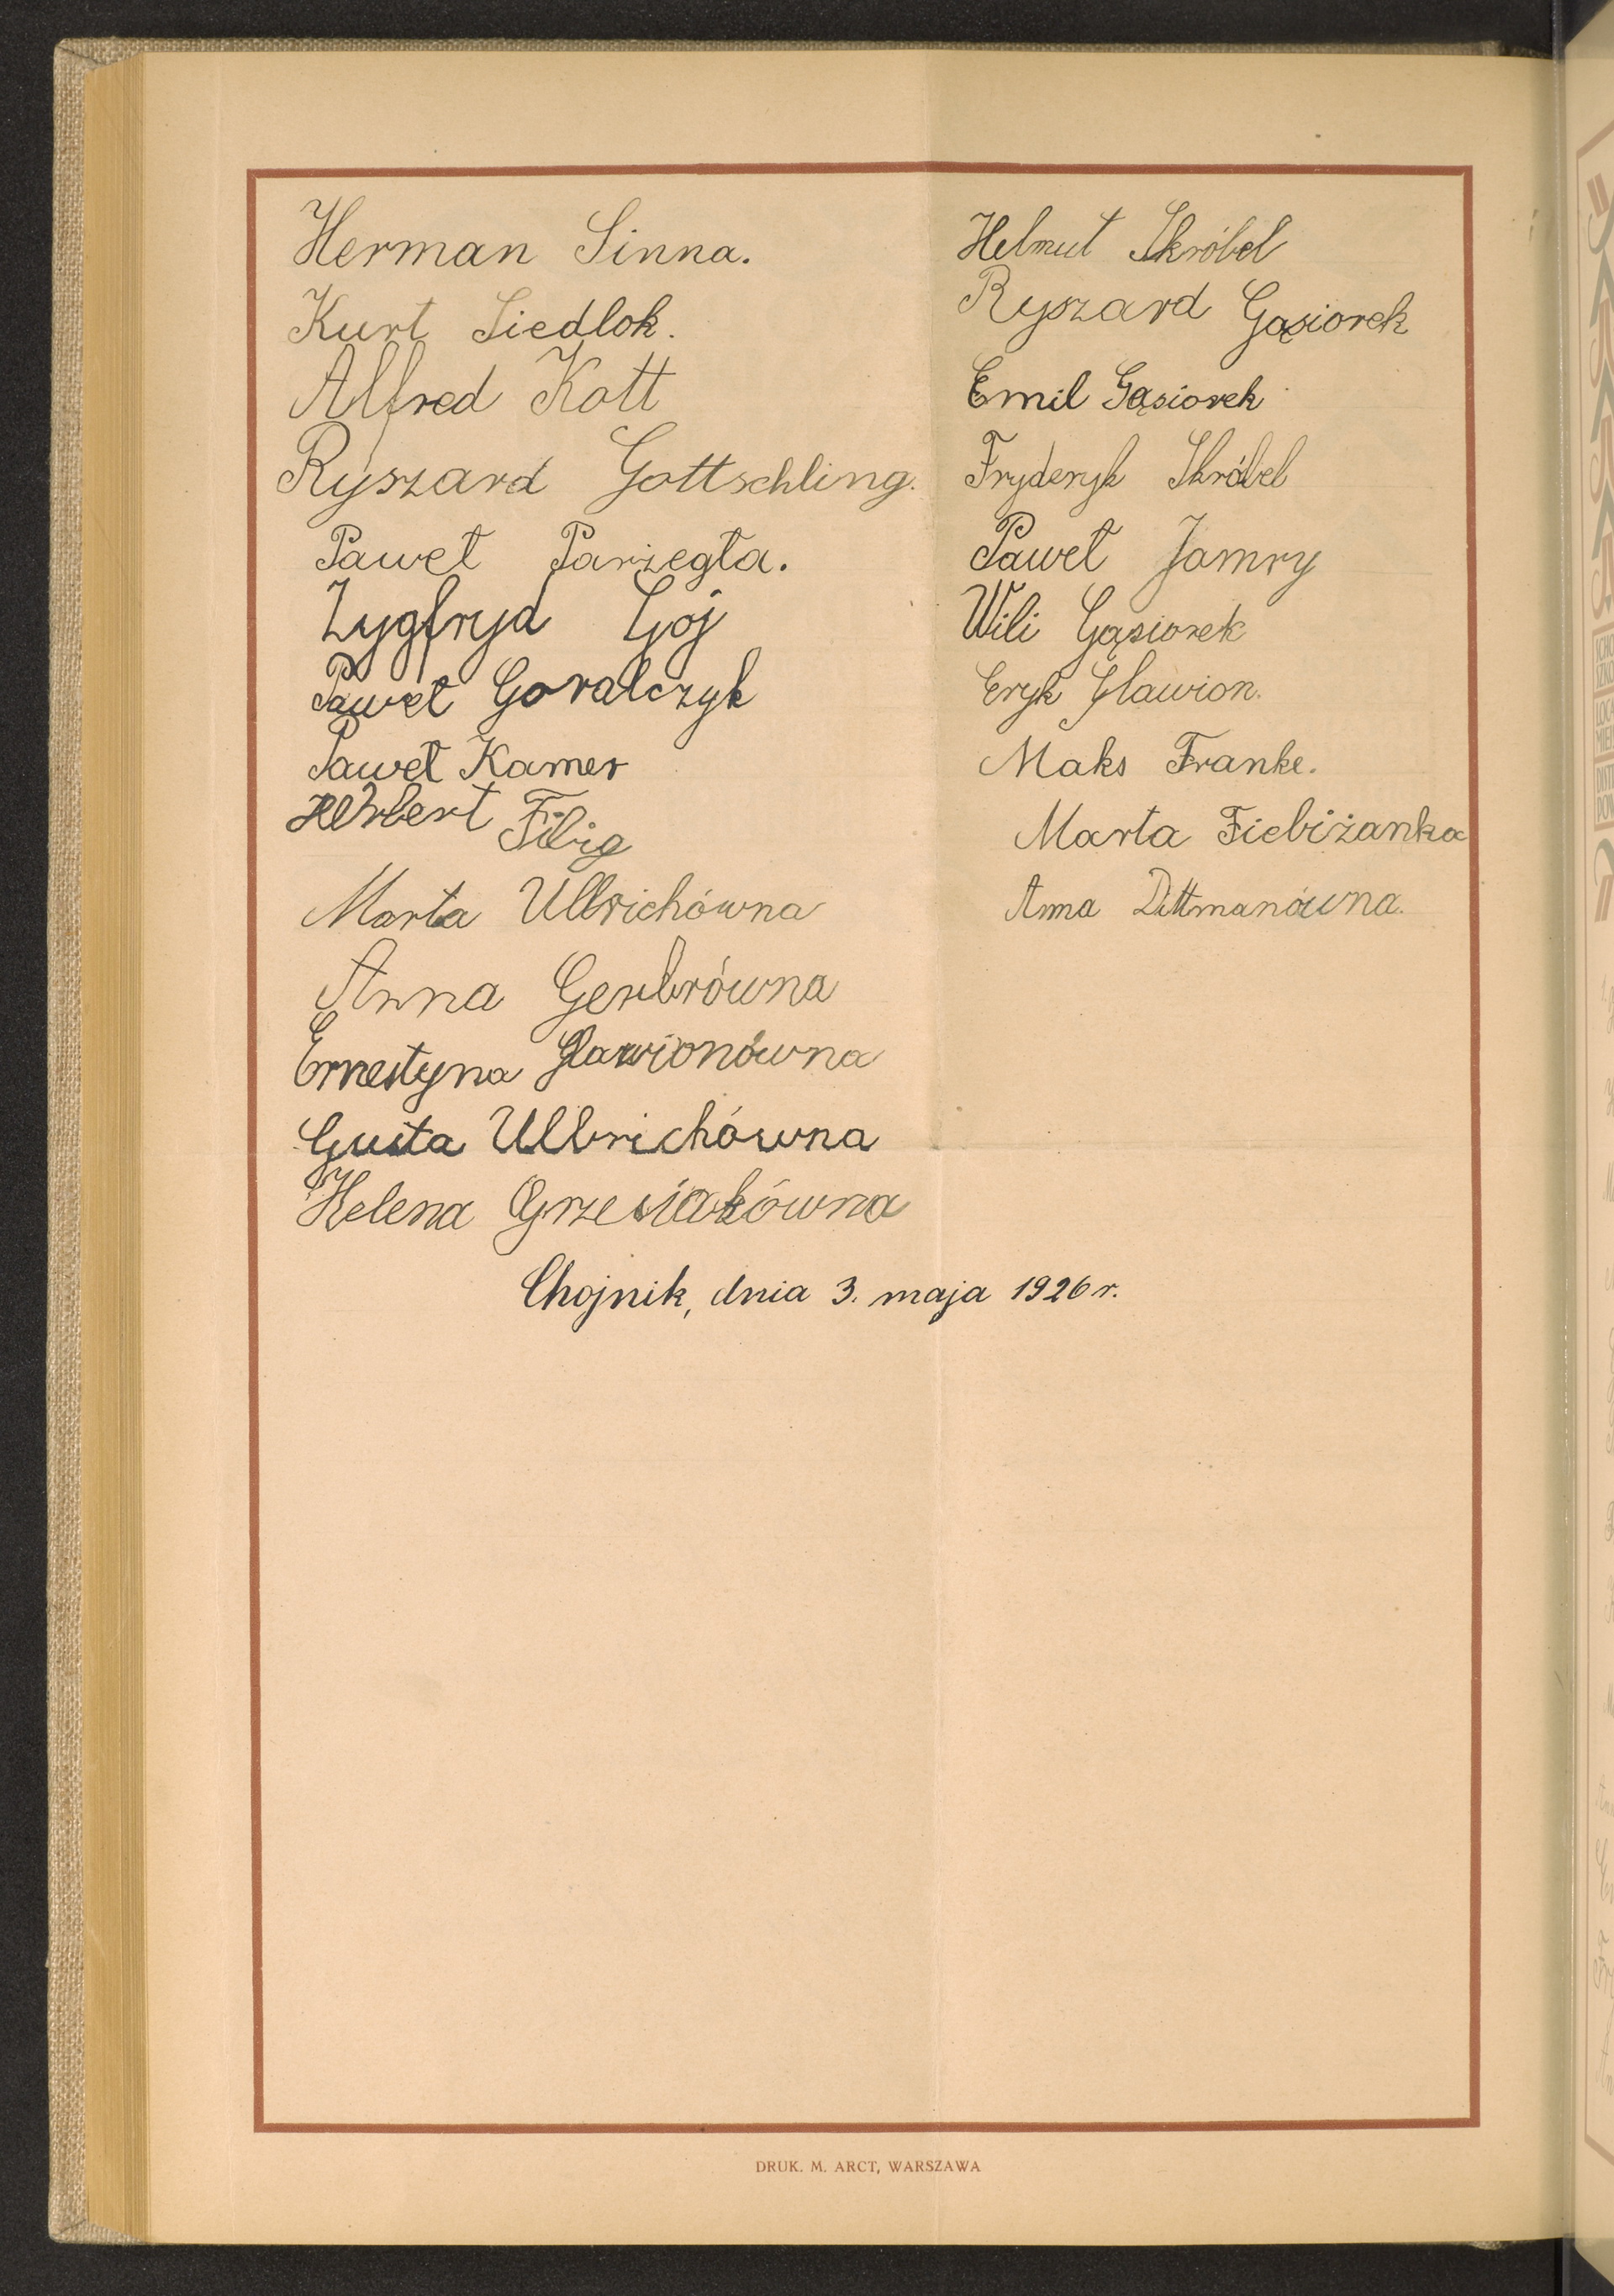 Herman Sinna.
Kurt Siedlok.
Alfred Kott
Ryszard Gottschling.
Paweł Parzegła.
Zygfryd Goj
Paweł Goralczyk
Paweł Kamer
Herbert Fibig
Marta Ulbrichówna
Anna Gerbrówna
Ernestyna Glawionówna
Gusta Ulbrichówna
Helena Grzesiakówna
Helmut Skróbel
Ryszard Gąsiorek
Emil Gąsiorek
Fryderyk Skróbel
Paweł Jamry
Wili Gąsiorek
Eryk Glawion.
Maks Franke.
Marta Fiebiżanka
Anna Dittmanówna.
Chojnik, dnia 3. maja 1926 r.
DRUK. M. ARCT, WARSZAWA